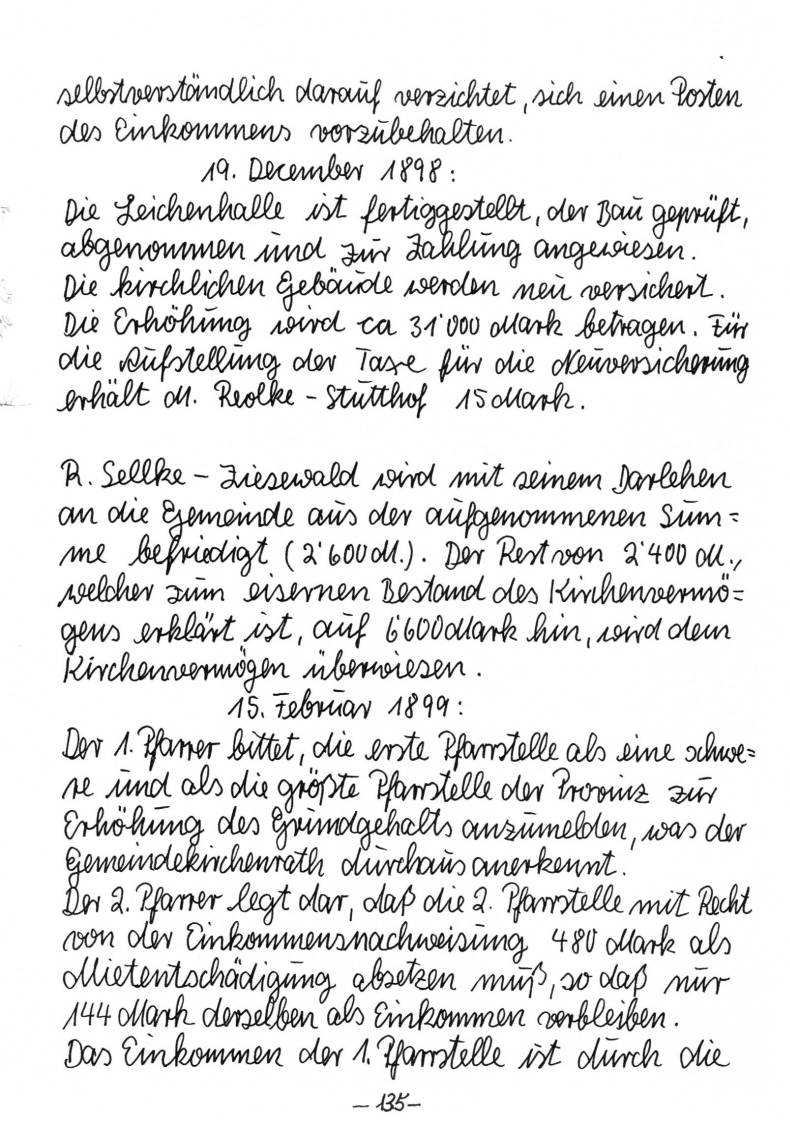 selbstverständlich darauf verzichtet, sich einen Posten
des Einkommens vorzubehalten.
19. December 1898:
Die Leichenhalle ist fertiggestellt, der Bau geprüft,
abgenommen und zur Zahlung angewiesen.
Die kirchlichen Gebäude werden neu versichert.
Die Erhöhung wird ca 31'000 Mark betragen. Für
die Aufstellung der Taxe für die Neuversicherung
erhält M. Reolke - Stutthof 15 Mark.
R. Sellke - Ziesewald wird mit seinem Darlehen
an die Gemeinde aus der aufgenommenen Sum=
me befriedigt (2'600 M.). Der Rest von 2'400 M.,
welcher zum eisernen Bestand des Kirchenvermö=
gens erklärt ist, auf 6'600 Mark hin, wird dem
Kirchenvermögen überwiesen.
15. Februar 1899:
Der 1. Pfarrer bittet, die erste Pfarrstelle als eine schwe=
re und als die größte Pfarrstelle der Provinz zur
Erhöhung des Grundgehalts anzumelden, was der
Gemeindekirchenrath durchaus anerkennt.
Der 2. Pfarrer legt dar, daß die 2. Pfarrstelle mit Recht
von der Einkommensnachweisung 480 Mark als
Mietentschädigung absetzen muß, so daß nur
144 Mark derselben als Einkommen verbleiben.
Das Einkommen der 1. Pfarrstelle ist durch die
- 135 -